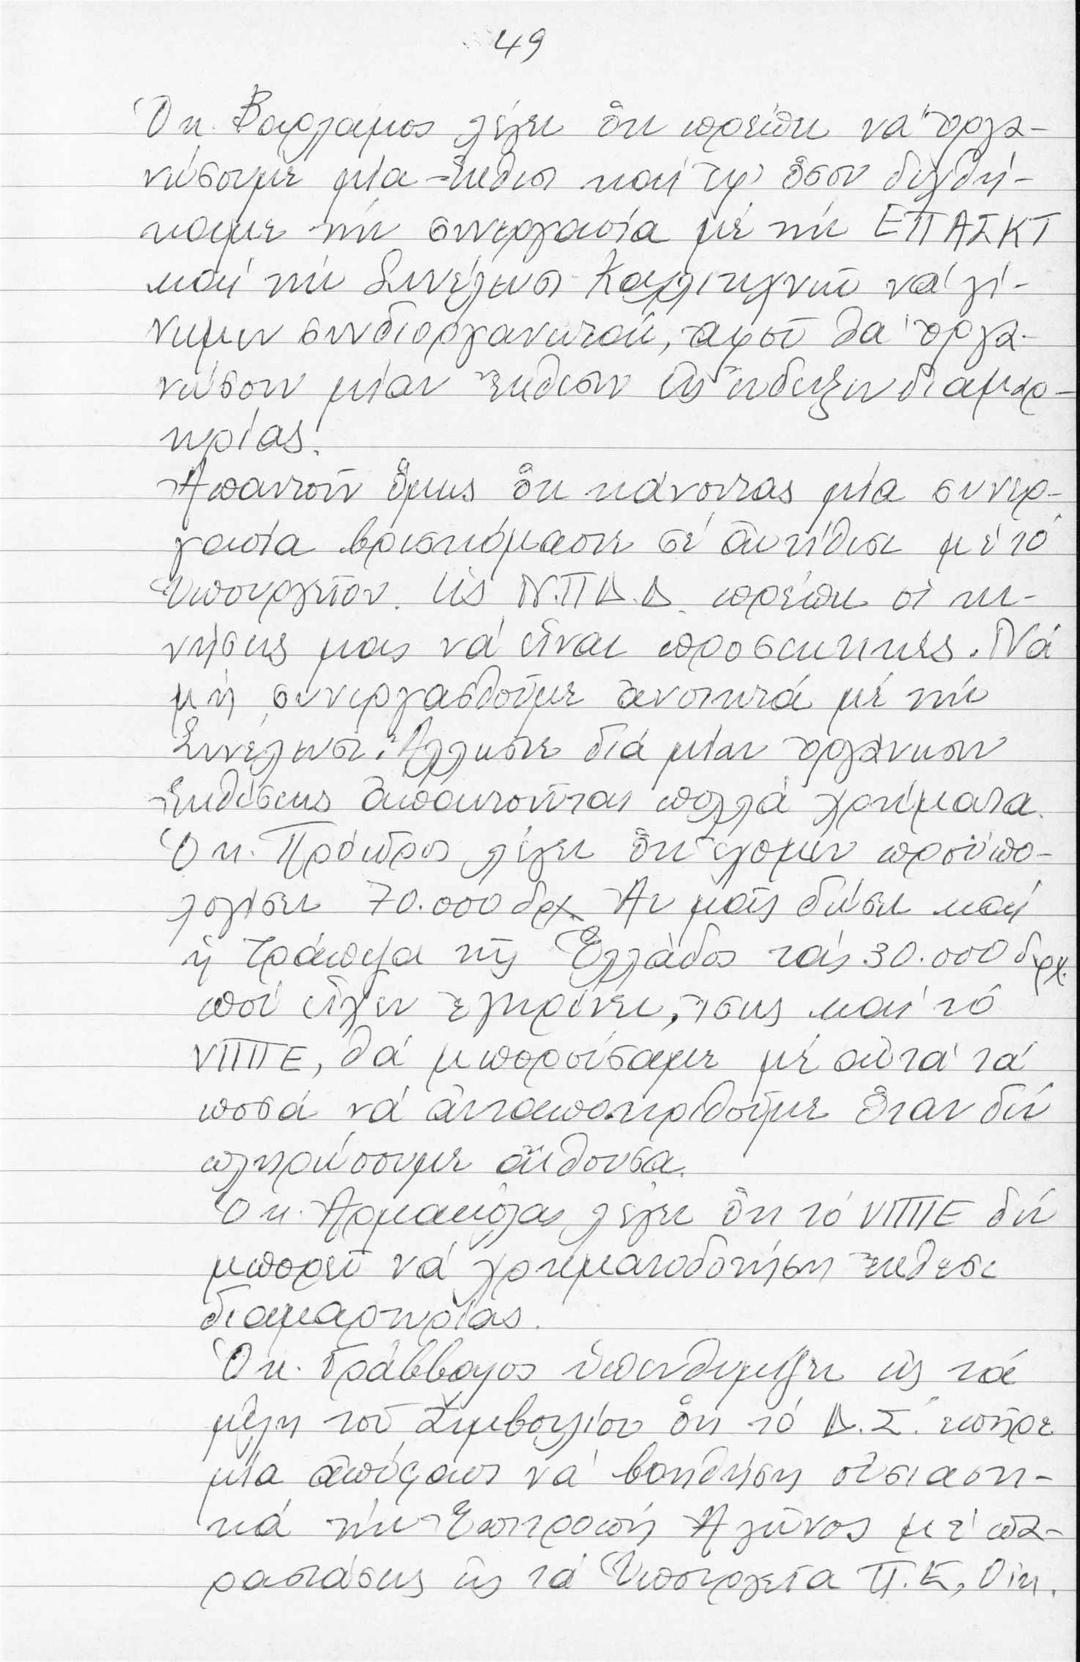 49
Ὁ κ. Βαρλάμος λέγει ὅτι πρέπει νά ὀργα-
νώσουμε μία ἔκθεση καί ἐφ' ὅσον δεχθή-
καμε τήν συνεργασία μέ τήν ΕΠΑΣΚΤ
καί τήν Συνέλευση Καλλιτεχνῶν νά γί-
νωμεν συνδιοργανωταί, ἀφοῦ θά ὀργα-
νώσουν μίαν ἔκθεσιν εἰς ἔνδειξιν διαμαρ-
τυρίας.
Ἀπαντοῦν ὅμως ὅτι κάνοντας μία συνερ-
γασία βρισκόμαστε σέ ἀντίθεση μέ τό
Ὑπουργεῖον. Ὡς Ν.Π.Δ.Δ. πρέπει οἱ κι-
νήσεις μας νά εἶναι προσεκτικές. Νά
μή συνεργασθοῦμε ἀνοικτά μέ τήν
Συνέλευση. Ἄλλωστε διά μίαν ὀργάνωσιν
ἐκθέσεως ἀπαιτοῦνται πολλά χρήματα.
Ὁ κ. Πρόεδρος λέγει ὅτι ἔχομεν προϋπο-
λογίσει 70.000 δρχ. Ἄν μᾶς δώσει καί
ἡ Τράπεζα τῆς Ἑλλάδος τάς 30.000 δρχ.
πού εἶχεν ἐγκρίνει, ἴσως καί τό
ΥΠΠΕ, θά μπορούσαμε μέ αὐτά τά
ποσά νά ἀνταποκριθοῦμε ὅταν δέν
πληρώσουμε αἴθουσα.
Ὁ κ. Ἀρμακόλας λέγει ὅτι τό ΥΠΠΕ δέν
μπορεῖ νά χρηματοδοτήση ἔκθεση
διαμαρτυρίας.
Ὁ κ. Γράββαλος ὑπενθυμίζει εἰς τά
μέλη τοῦ Συμβουλίου ὅτι τό Δ.Σ. ἐπῆρε
μία ἀπόφαση νά βοηθήση οὐσιαστι-
κά τήν Ἐπιτροπή Ἀγῶνος μέ πα-
ραστάσεις εἰς τά Ὑπουργεῖα Π.Ε, Οἰκ.